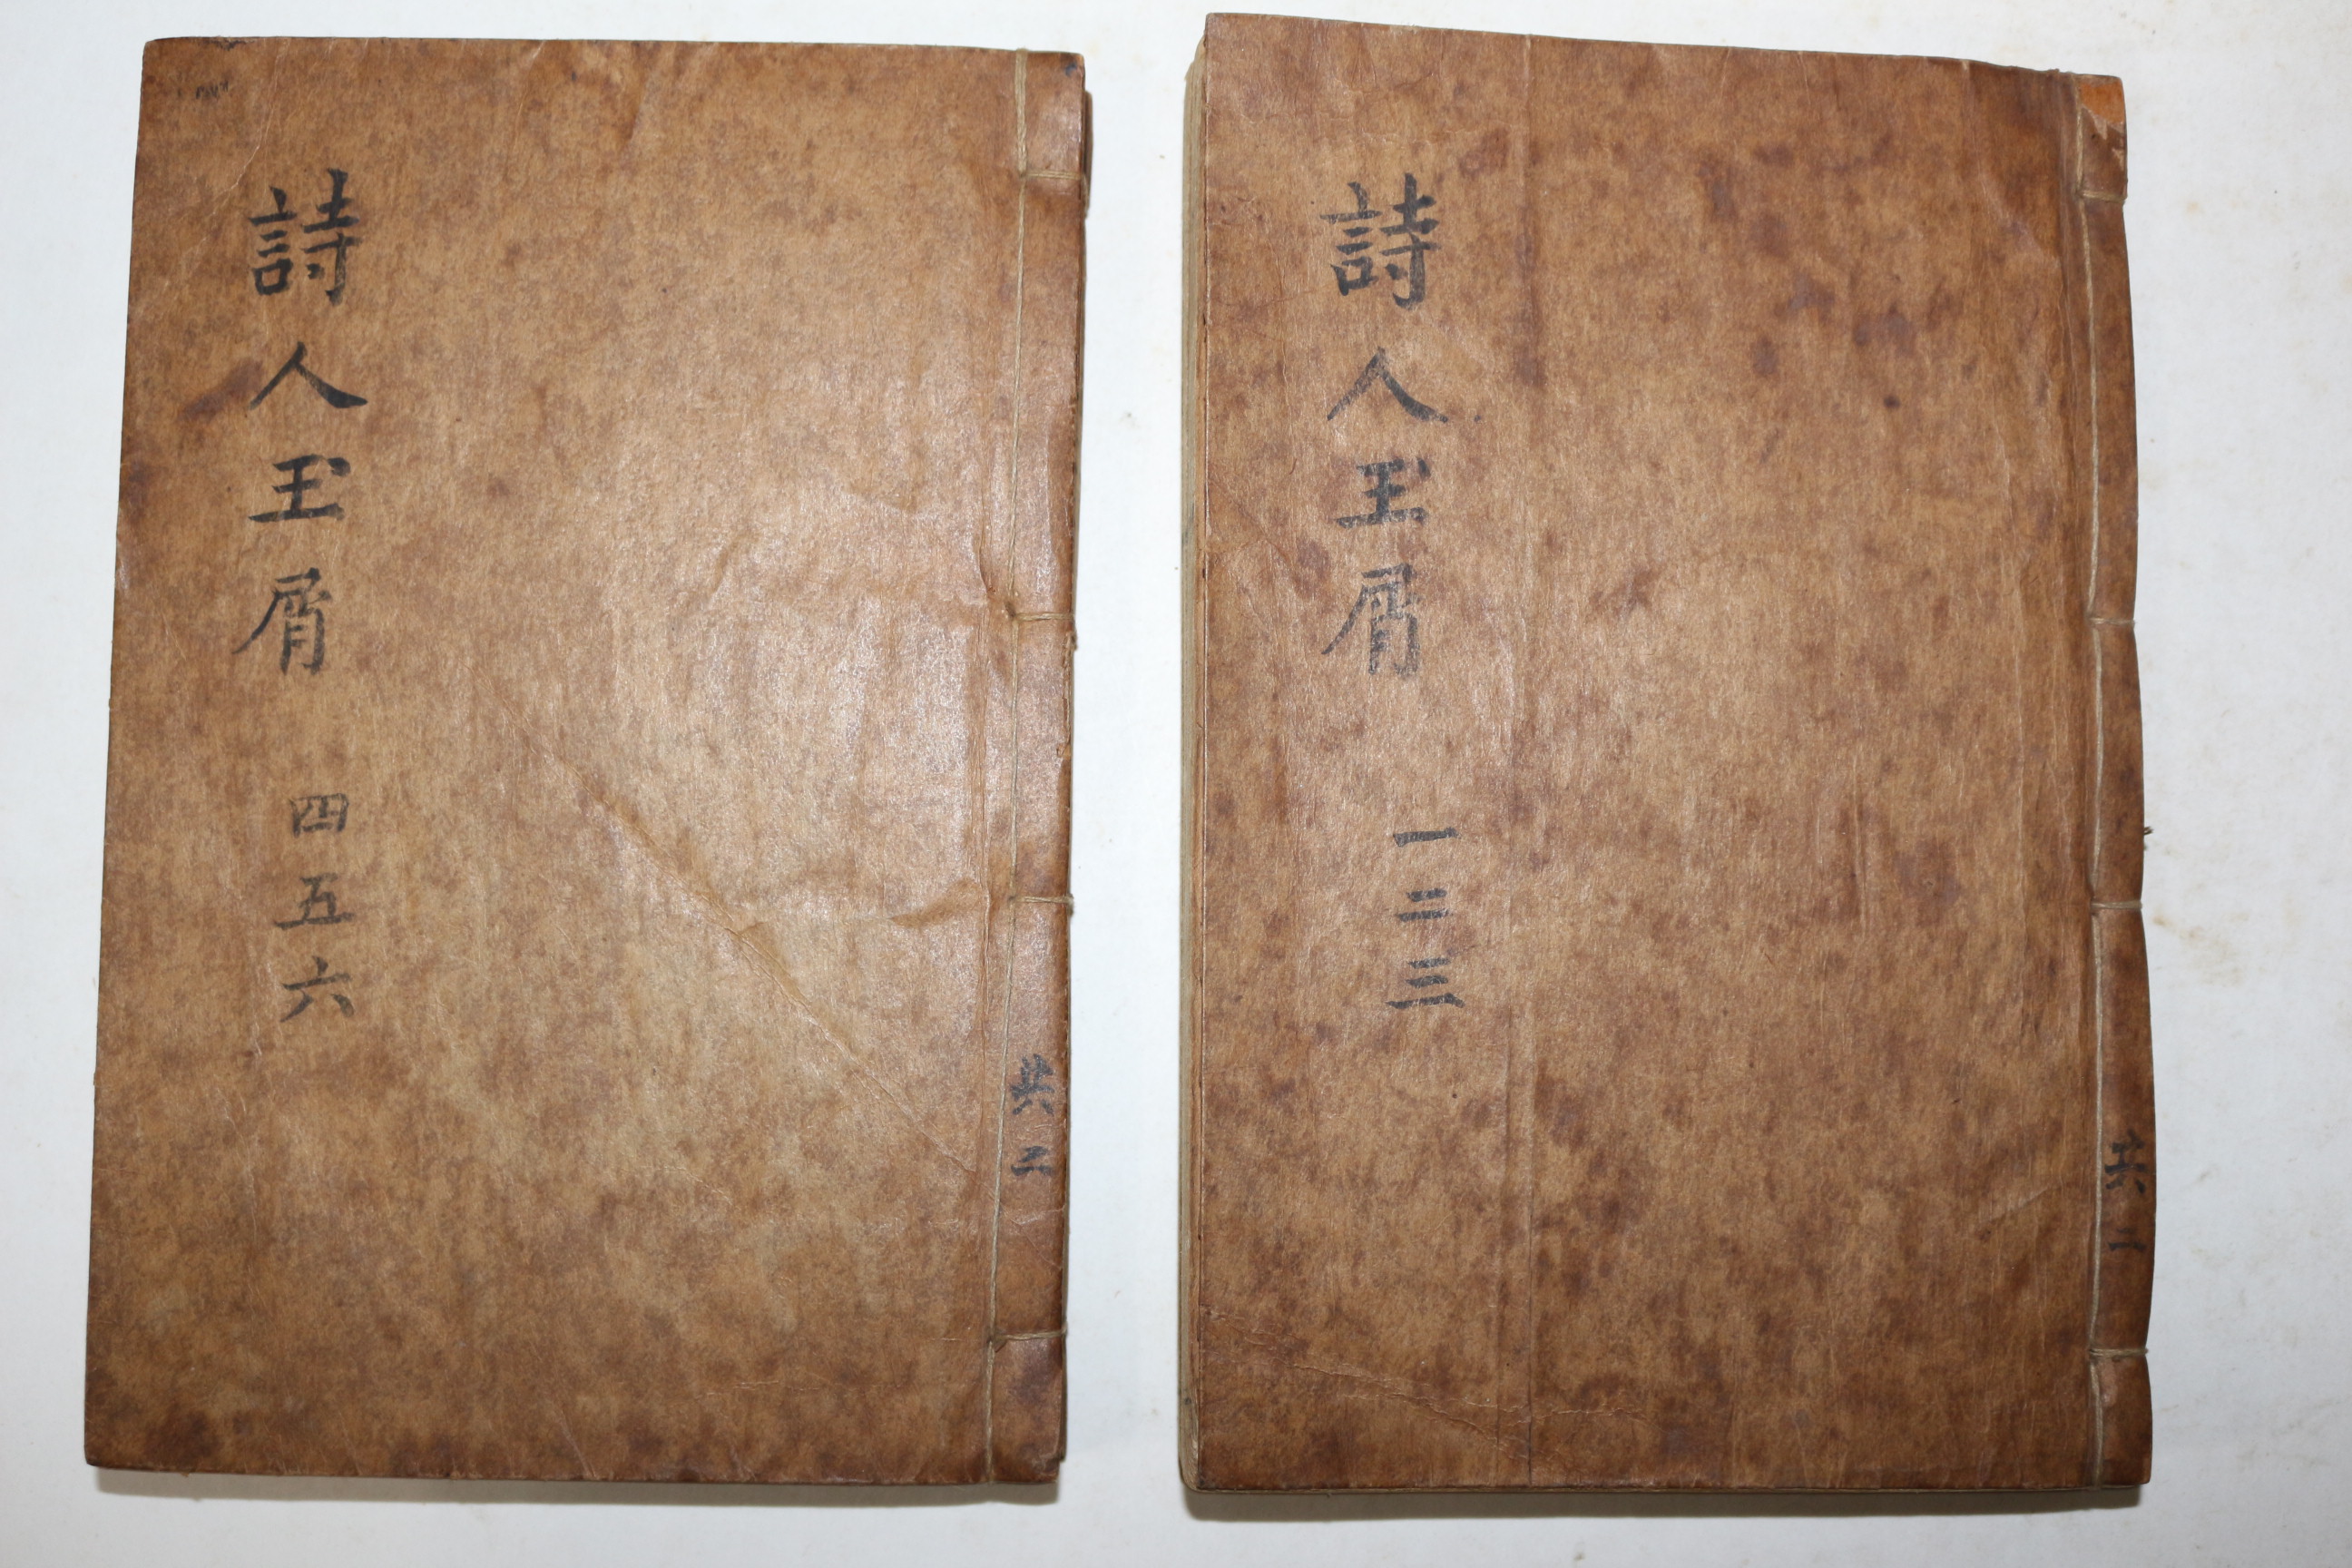 詩人玉屑 一二三
共二
詩人玉屑 四五六
共二